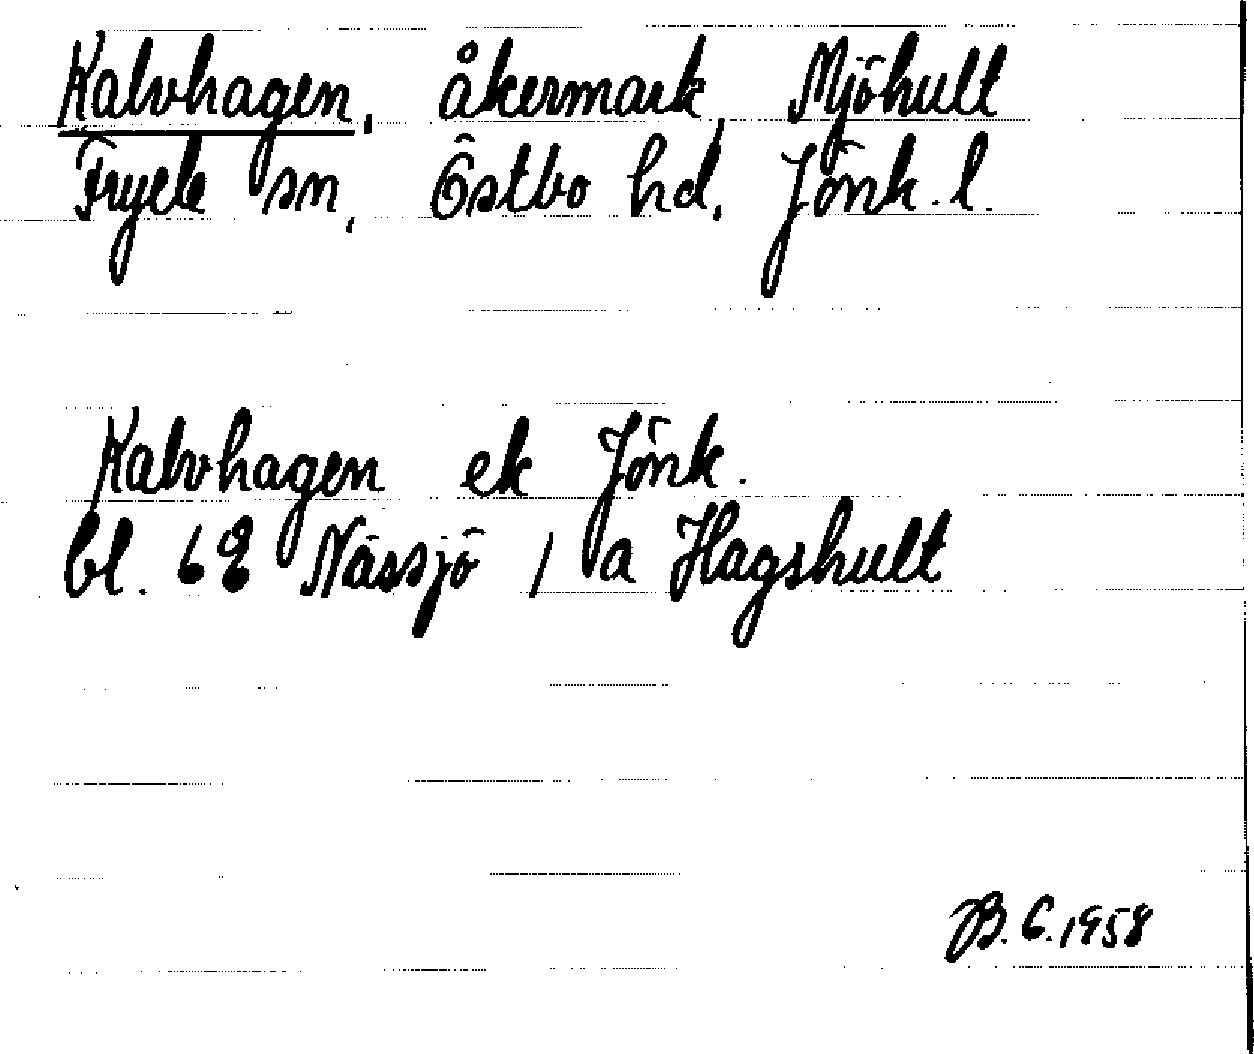 Kalvhagen, åkermark, Mjöhult
Tryele sn, Östbo hd, Jönk. l.
Kalvhagen ek Jönk.
bl. 6E Nässjö 1 a Hagshult
B.C. 1958